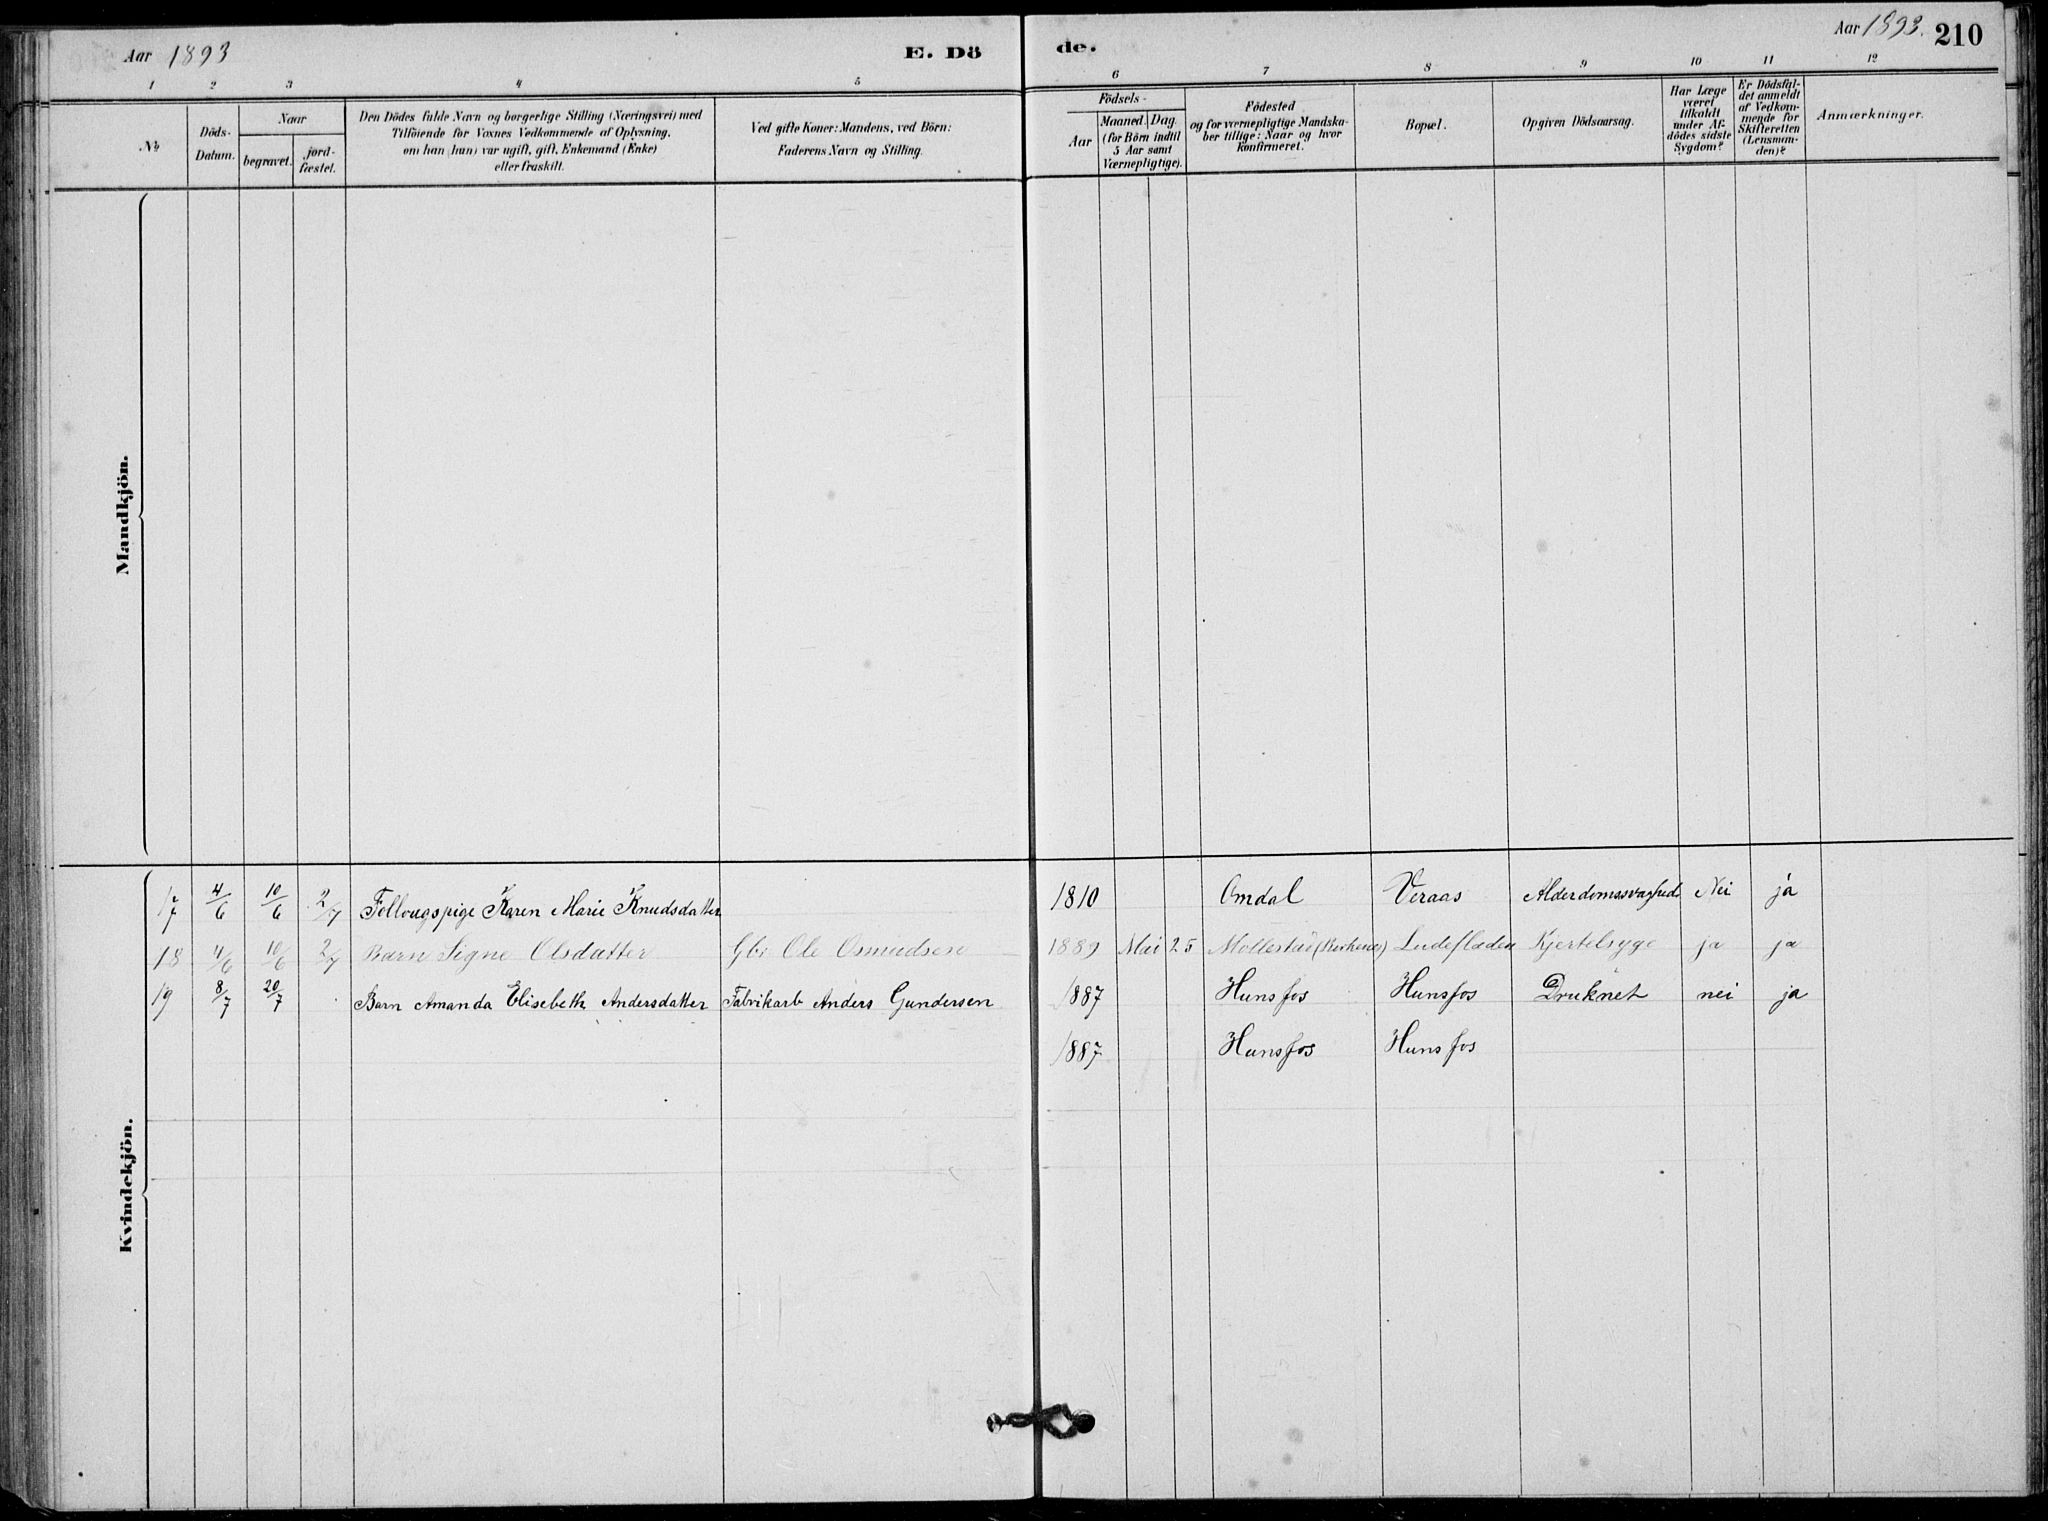 Aar 1893
E. Dö
de.
Aar 1893.
210
1 2 3 4 5 6 7 8 9 10 11 12
No
Döds-Datum.
Naar
begravet.
jord-fæstet.
Den Dödes fulde Navn og borgerlige Stilling (Næringsvei) med
Tilföiende for Voxnes Vedkommende af Oplysning,
om han (hun) var ugift, gift, Enkemand (Enke)
eller fraskilt.
Ved gifte Koner: Mandens, ved Börn:
Faderens Navn og Stilling.
Födsels-
Aar
Maaned. Dag.
(for Börn indtil
5 Aar samt
Værnepligtige).
Födested
og for værnepligtige Mandska-
ber tillige: Naar og hvor
konfirmeret.
Bopæl.
Opgiven Dödsaarsag.
Har Læge
været
tilkaldt
under Af-
dödes sidste
Sygdom?
Er Dödsfal-
det anmeldt
af Vedkom-
mende for
Skifteretten
(Lensman-
den)?
Anmærkninger.
Mandkjön.
Kvindekjön.
17 4/6 10/6 2/7 Karen Marie Knudsdatter 1810 Omdal Veraas Alderdomssvaghed Nei ja
18 4/6 10/6 2/7 Barn Signe Olsdatter Gbr Ole Osmudsen 1889 Mai 25 Mollestad (Birkenes) Kjertelsyge ja ja
19 8/7 20/7 Barn Amanda Elisebeth Andersdatter Fabrikarb Anders Gundersen 1887 Hunsfos Hunsfos Druknet nei ja
1887 Hunsfos Hunsfos